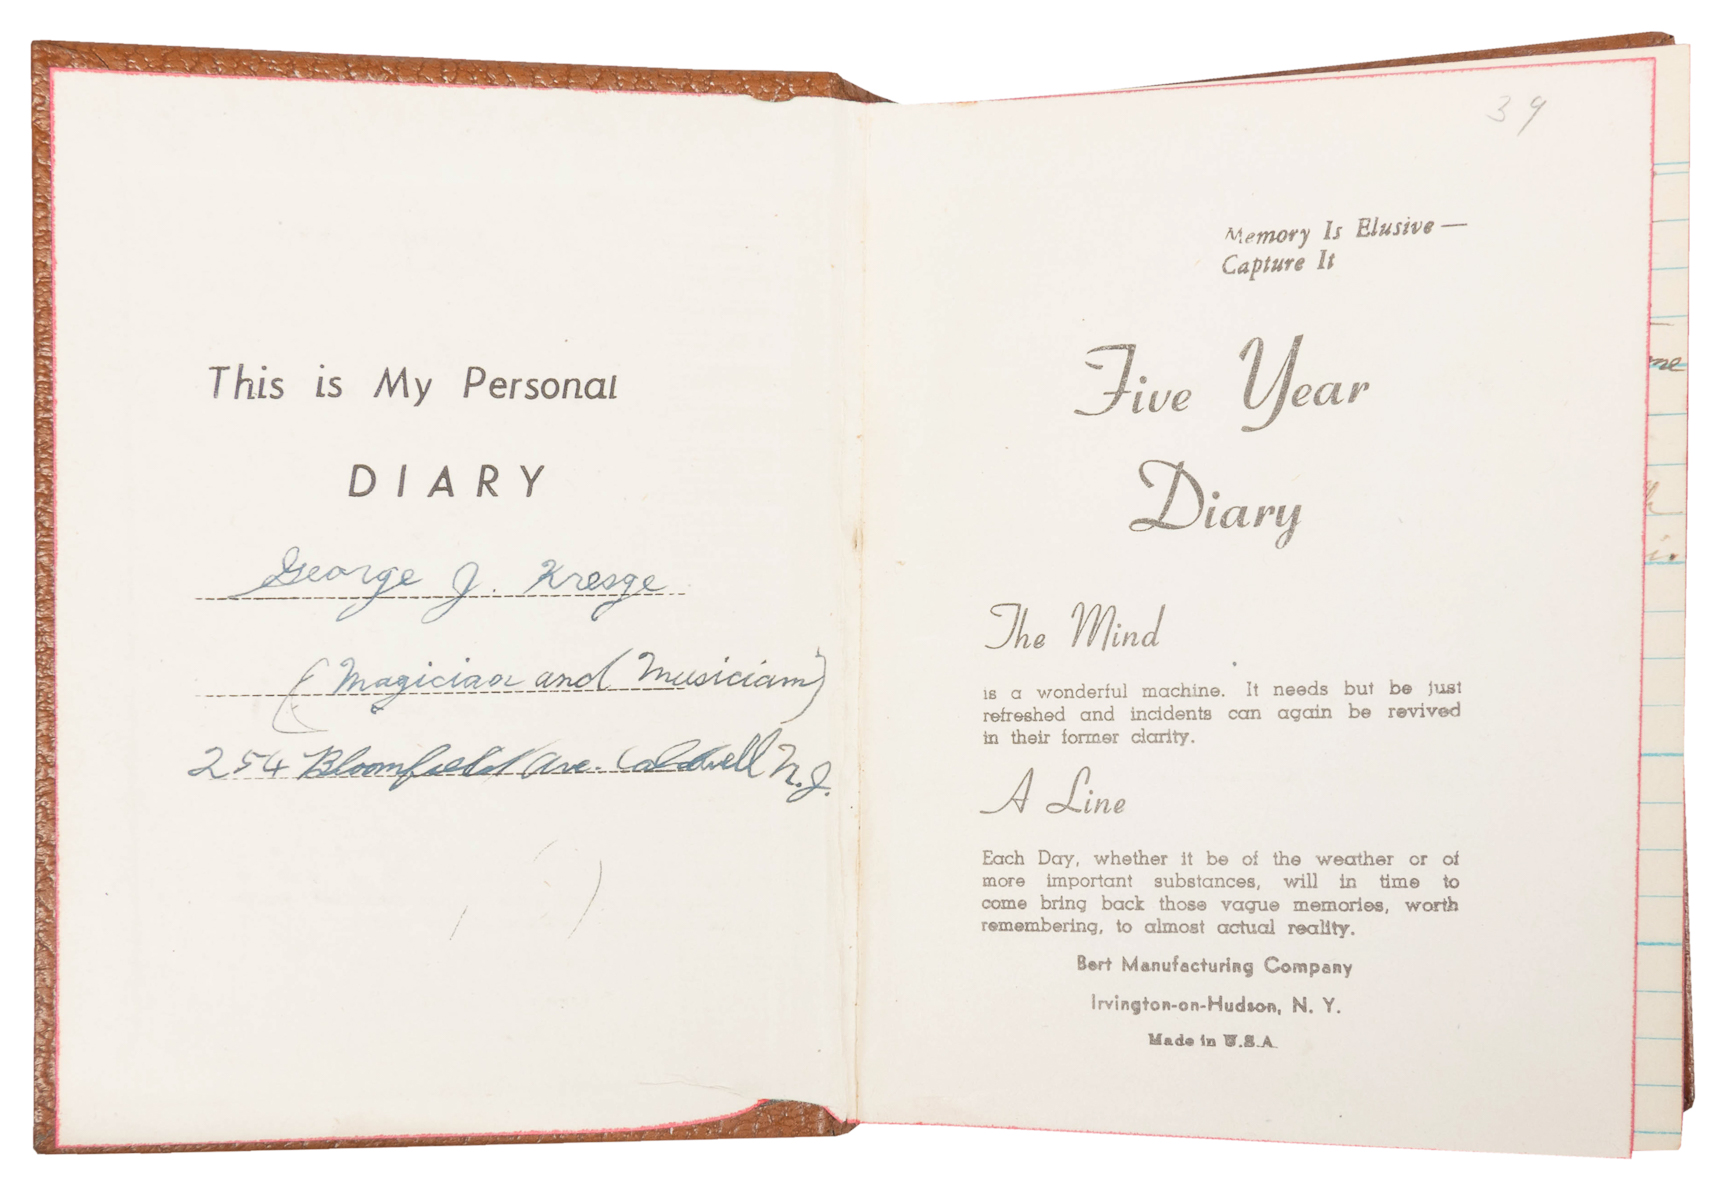 This is My Personal
DIARY
George J. Kresge
(Magician and Musician)
254 Bloomfield Ave. Caldwell N.J.
39
Memory Is Elusive —
Capture It
Five Year
Diary
The Mind
is a wonderful machine. It needs but be just
refreshed and incidents can again be revived
in their former clarity.
A Line
Each Day, whether it be of the weather or of
more important substances, will in time to
come bring back those vague memories, worth
remembering, to almost actual reality.
Bert Manufacturing Company
Irvington-on-Hudson, N. Y.
Made in U.S.A.